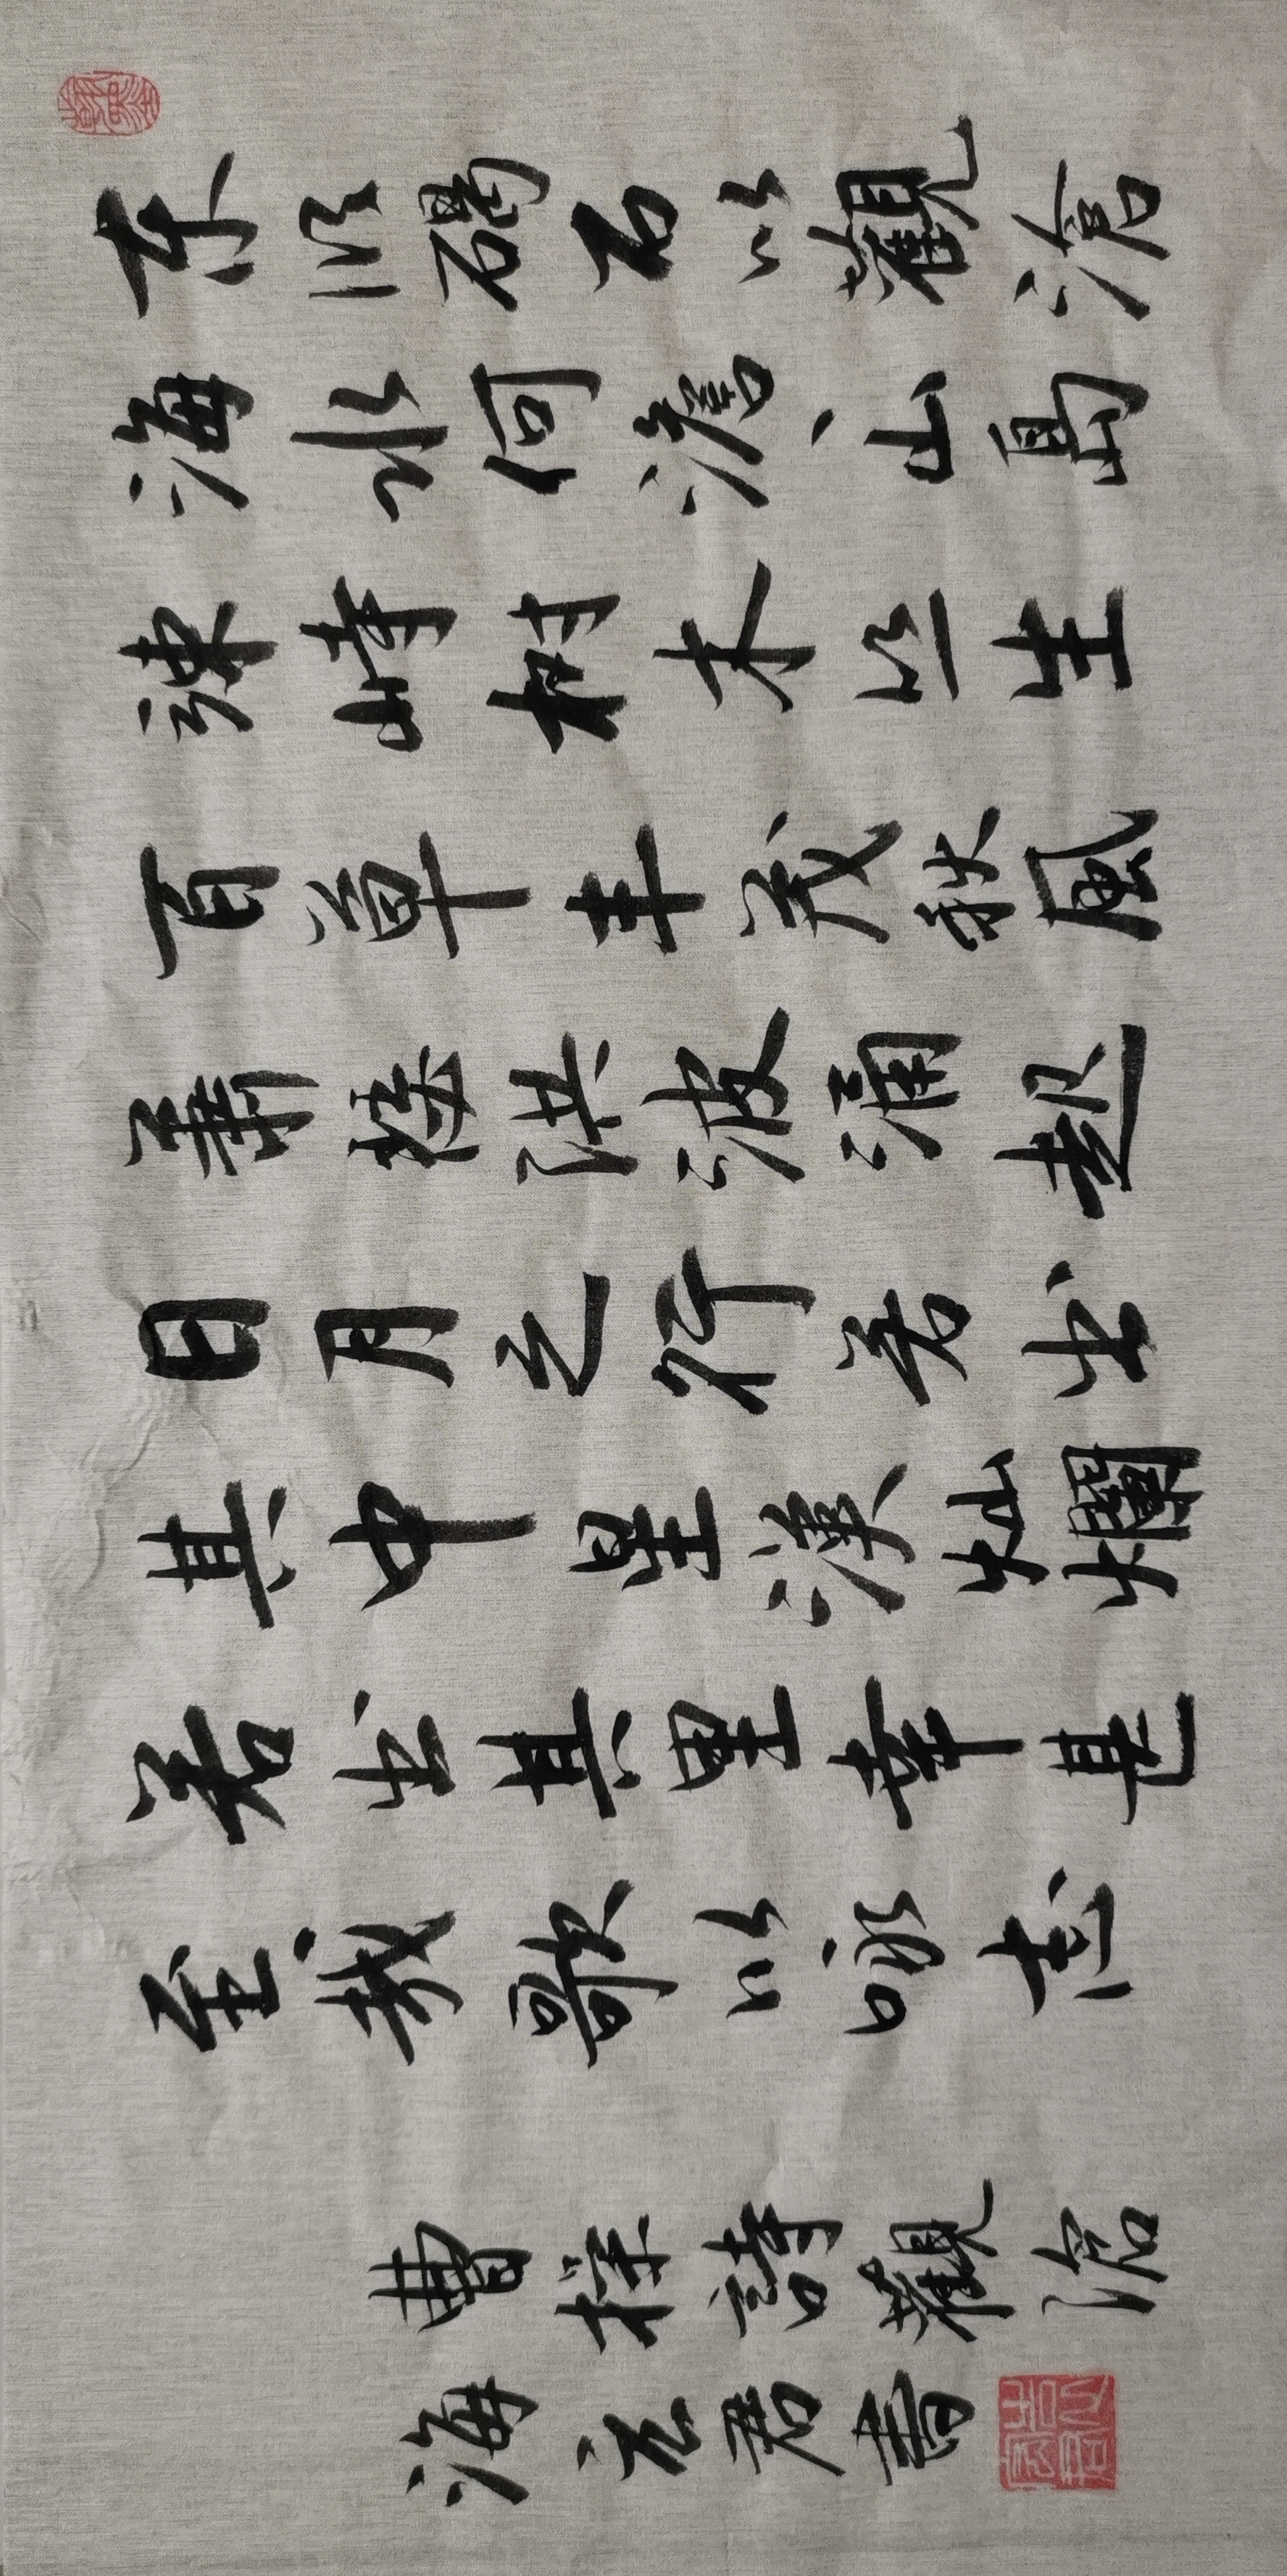 东临碣石以觀滄
海水何澹〻山島
竦峙樹木丛生
百草丰茂秋風
蕭瑟洪波涌起
日月之行若出
其中星漢灿爛
若出其里幸甚
至哉歌以咏志
曹操詩觀沧
海元君書